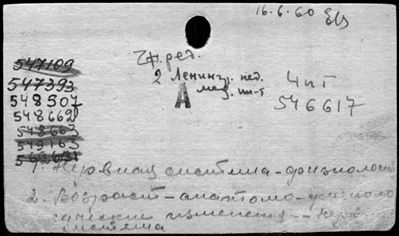 16.6.60
Чн. ред.
2 Ленингр. пед.
А мед. ин-т
Чит
546617
547109
547393
548507
548669
548663
549163
1. Нервная система - физиология
2. Возраст - анатомо - физиоло
гические изменения -- нерв.
система